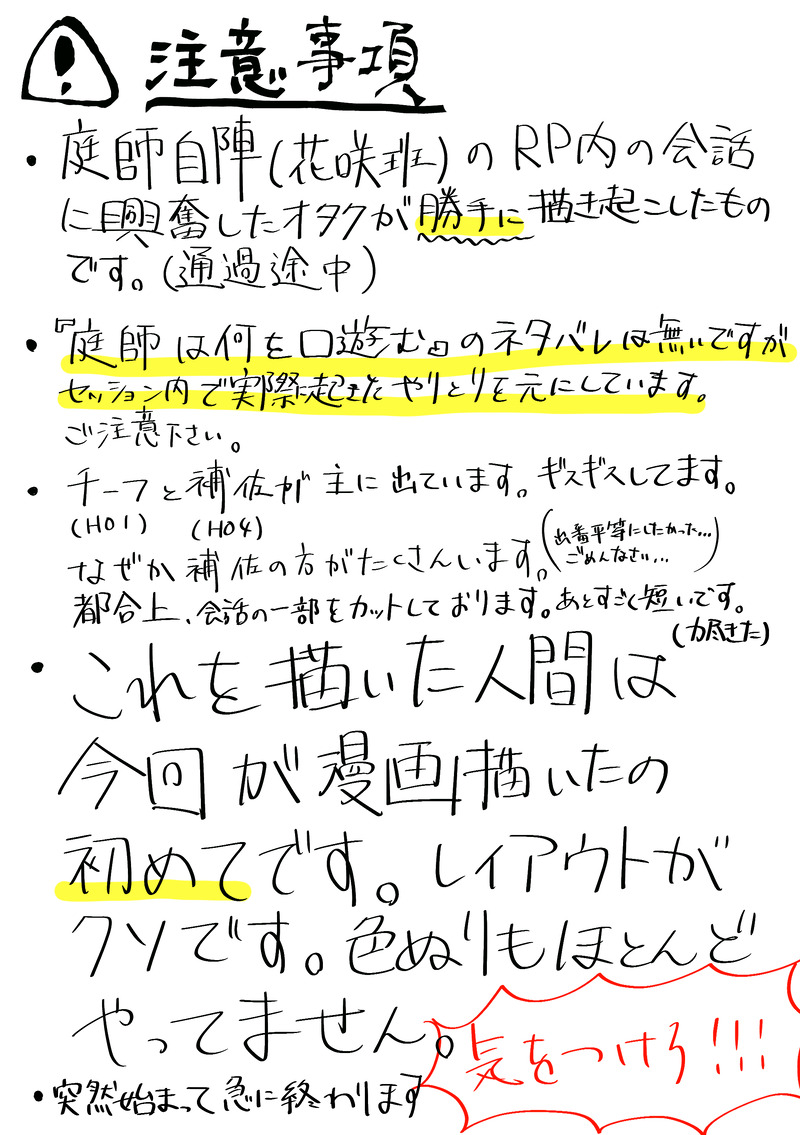 注意事項
・庭師自陣(花咲班)のRP内の会話
に興奮したオタクが勝手に描き起こしたもの
です。(通過途中)
・『庭師は何を口遊む』のネタバレは無いですが
セッション内で実際に起きたやりとりを元にしています。
ご注意下さい。
・チーフと補佐が主に出ています。ギスギスしてます。
(HO1) (HO4)
なぜか補佐の方がたくさんいます。(出番平等にしたかった…
ごめんなさい…)
都合上、会話の一部をカットしております。あとすごく短いです。
(力尽きた)
・これを描いた人間は
今回が漫画描いたの
初めてです。レイアウトが
クソです。色ぬりもほとんど
やってません。
気をつけろ!!!
・突然始まって急に終わります